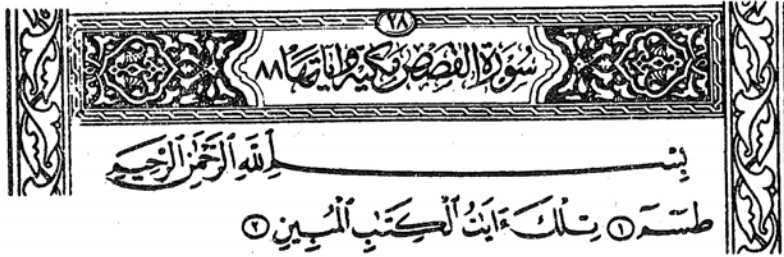 ٢٨
سُورَةُ القَصَصِ مَكيّة وَآيَاتُهَا ٨٨
بِسْمِ ٱللَّهِ ٱلرَّحْمَٰنِ ٱلرَّحِيمِ
طسٓمٓ ١ تِلْكَ ءَايَٰتُ ٱلْكِتَٰبِ ٱلْمُبِينِ ٢